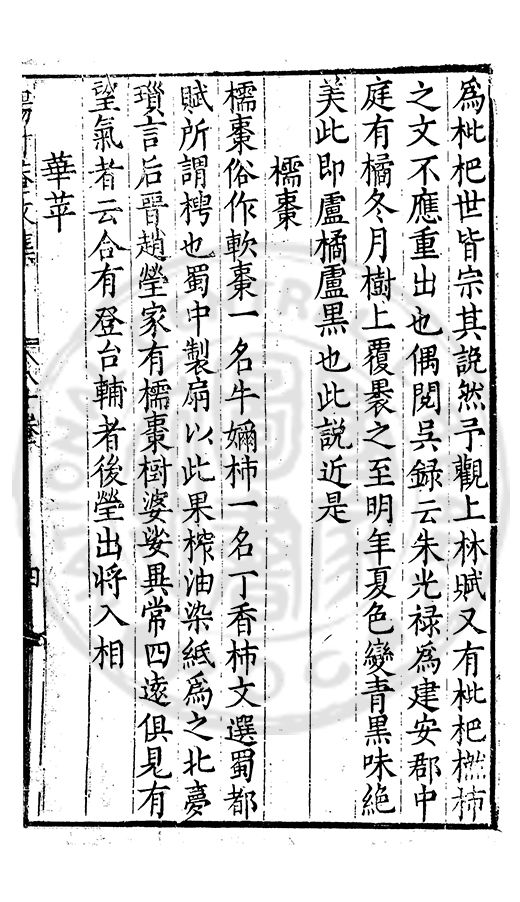 為枇杷世皆宗其説然予觀上林賦又有枇杷橪柿
之文不應重出也偶閲吳録云朱光禄為建安郡中
庭有橘冬月樹上覆裹之至明年夏色變青黒味絶
美此即盧橘盧黒也此説近是
檽棗
檽棗俗作軟棗一名牛嬭柿一名丁香柿文選蜀都
賦所謂梬也蜀中製扇以此果榨油染紙為之北夢
瑣言后晉趙瑩家有檽棗樹婆娑異常四遠俱見有
望氣者云合有登台輔者後瑩出將入相
華苹